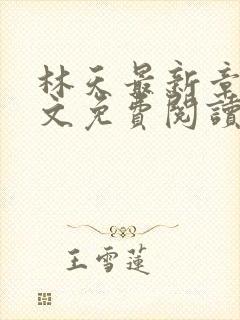 林天最新章
文免費閱讀
王雪蓮